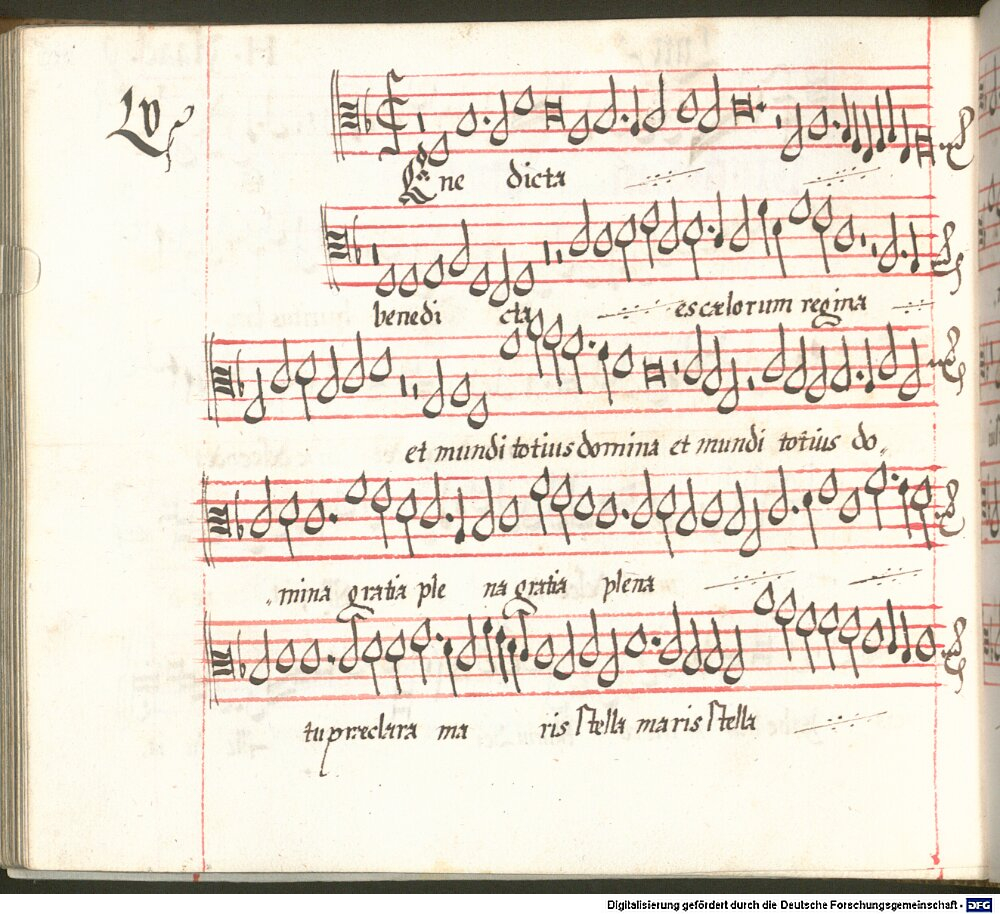 LV
Bene dicta
benedi cta es cælorum regina
et mundi totius domina et mundi totius do„
„mina gratia ple na gratia plena
tu præclara ma ris stella maris stella
Digitalisierung gefördert durch die Deutsche Forschungsgemeinschaft - DFG